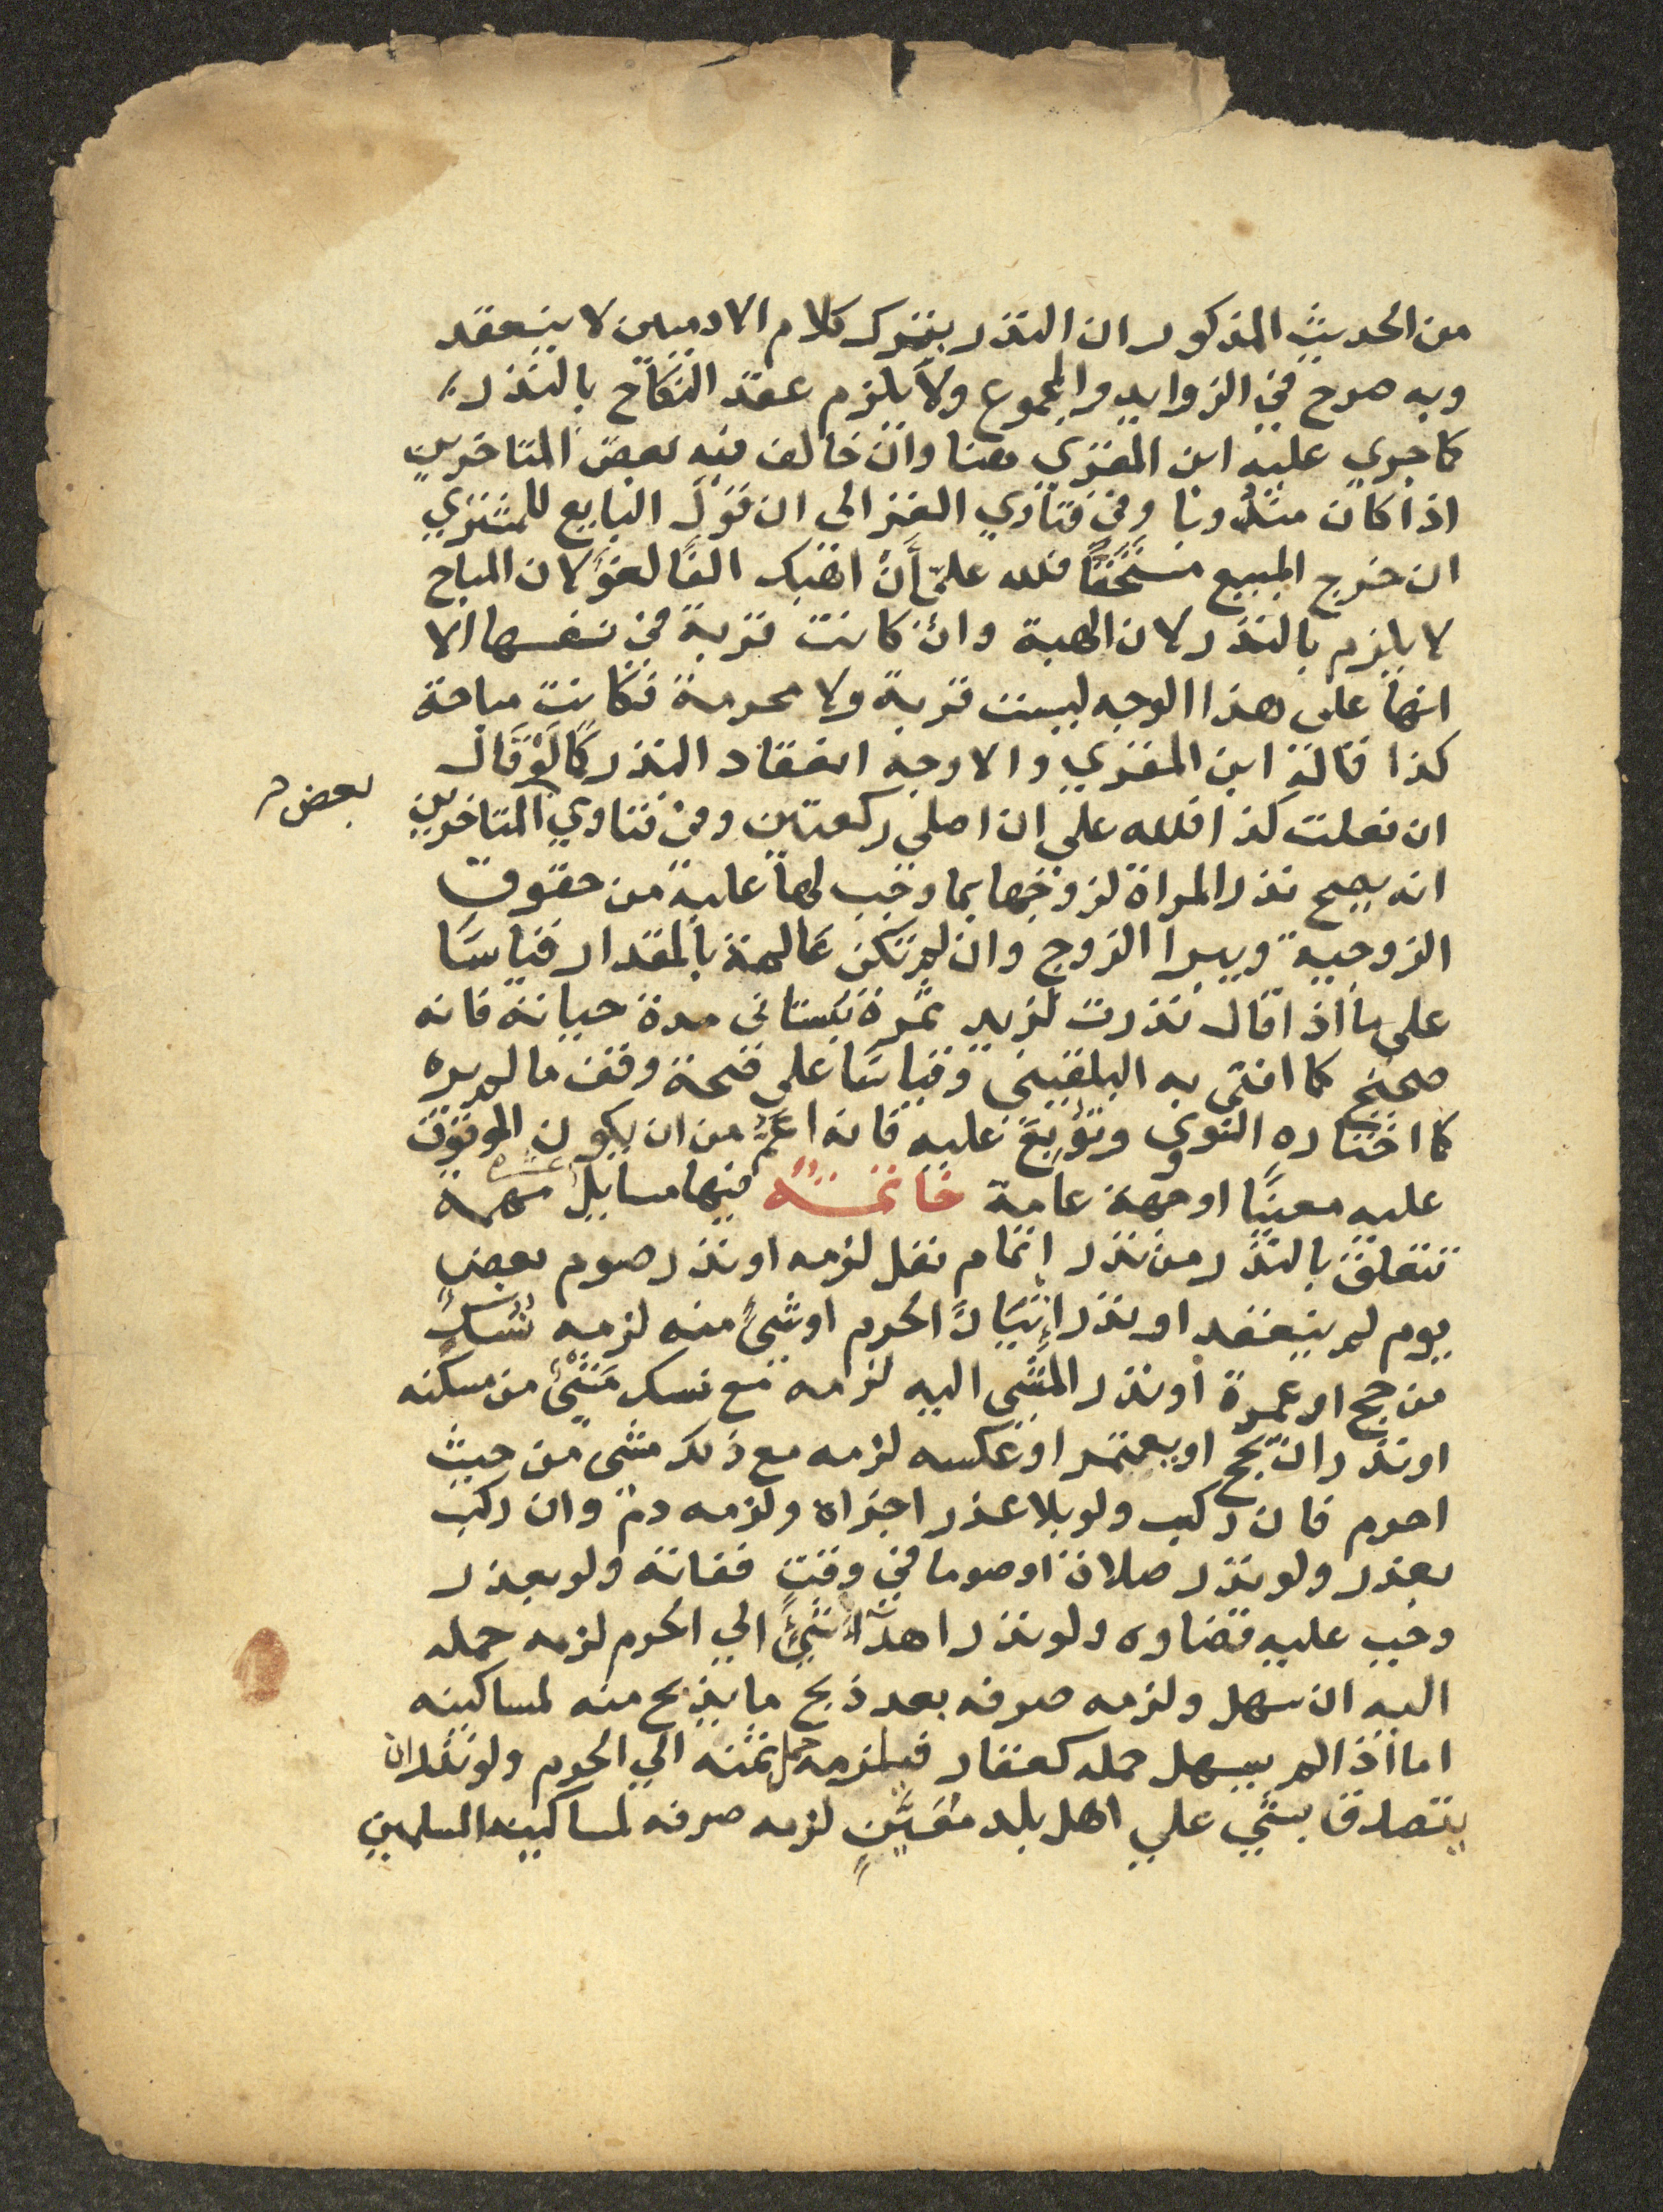 من الحديث المذكور ان النذر بترك كلام الادميين لا ينعقد
وبه صرح في الزوايد والمجموع ولا يلزم عقد النكاح بالنذر
كما جري عليه ابن المقري هنا وان خالف فيه بعض المتاخرين
اذا كان مندوبا وفي فتاوي الغزالي ان قول البايع للمشتري
ان خرج المبيع مستحقًا فلله عليّ أَنْ اهبك الفًا لغوٌ لان المباح
لا يلزم بالنذر لان الهبة وان كانت قربة في نفسها الا
انها على هذا الوجه ليست قربة ولا محرمة فكانت مباحة
كذا قاله ابن المقري والاوجه انعقاد النذر كَمَا لَوْ قَال
ان فعلت كذا فلله علي ان اصلي ركعتين وفي فتاوي المتاخرين
بعض
انه يصح نذر المراة لزوجها بما وجب لها عليه من حقوق
الزوجية ويبرا الزوج وان لم تكن عالمة بالمقدار قياسًا
على ما اذا قال نذرت لزيد ثمرة بستاني مدة حياته فانه
صحيح كما افتى به البلقيني وقياسًا على صحة وقف ما لم يره
كما اختاره النووي وتوبع عليه فانه اعمّ من ان يكون الموقوف
عليه معينًا او جهة عامة خاتمــة فيها مسايل مهمة
تتعلق بالنذر من نذر اتمام نفل لزمه او نذر صوم بعض
يوم لم ينعقد او نذر إتيانَ الحرم او شئ منه لزمه نُسُكٌ
من حج او عمرة او نذر المشي اليه لزمه مع نسك مَشْيٌ من مسكنه
او نذر ان يحج او يعتمر او عكسه لزمه مع ذلك مشى من حيث
احرم فان ركب ولو بلا عذر اجزاه ولزمه دم وان ركب
بعذر ولو نذر صلاة او صوما في وقت ففاته ولو بعذر
وجب عليه قضاوه ولو نذر اهداء شئٍ الي الحرم لزمه حمله
اليه ان سهل ولزمه صرفه بعد ذبح ما يذبح منه لمساكينه
اما اذا لم يسهل حمله كعقار فيلزمه حمل ثمنه الي الحرم ولو نذر ان
يتصدق بشي علي اهل بلد معَيَّنٍ لزمه صرفه لمساكينه المسلمين